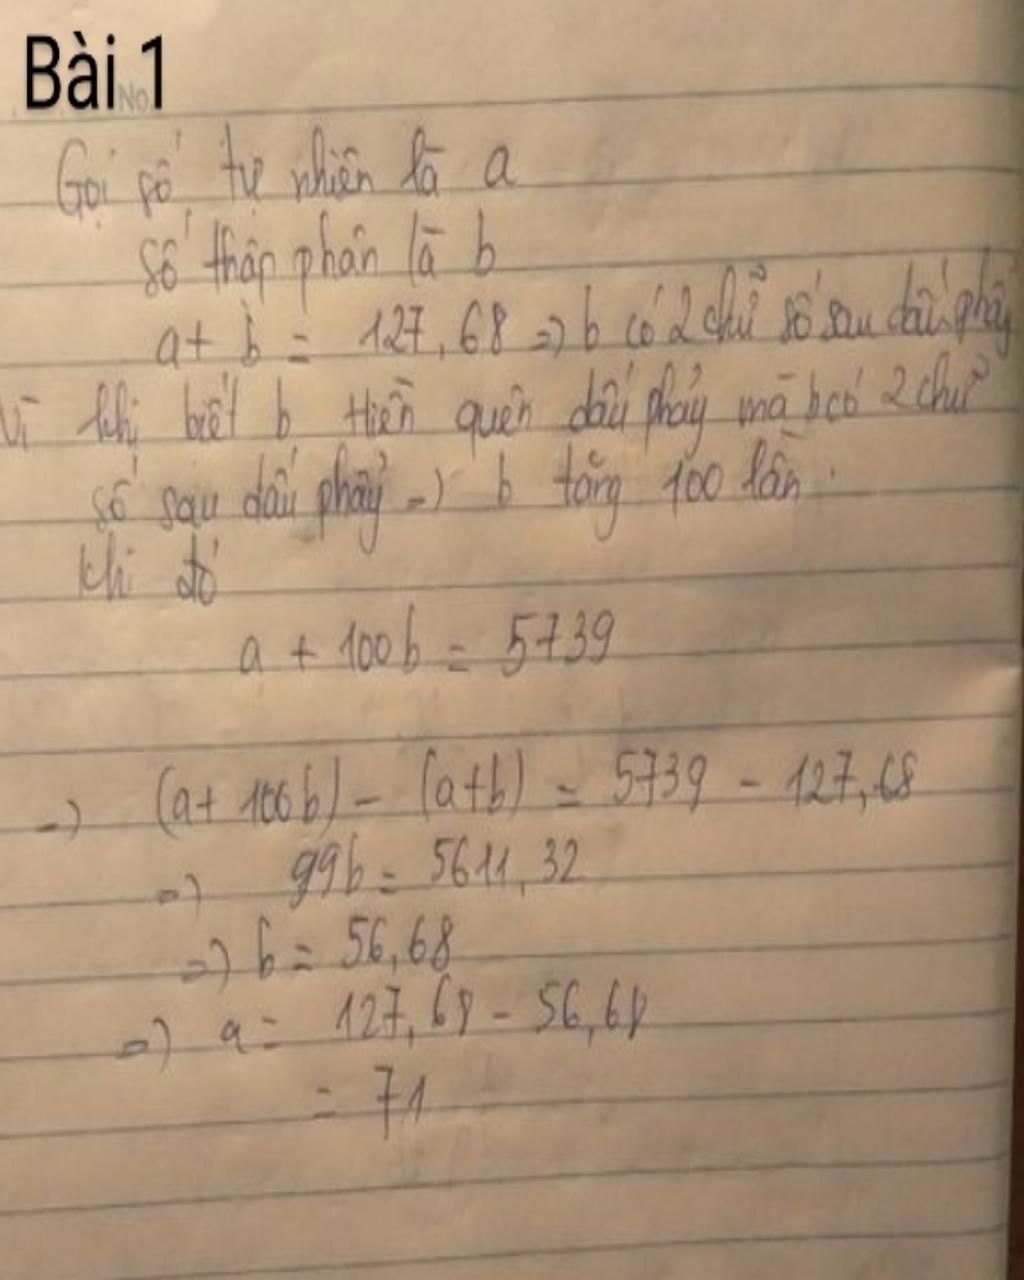 Bài 1
No.
Gọi số tự nhiên là a
số thập phân là b
a + b = 127,68 => b có 2 chữ số sau dấu phẩy
Vì khi biết b Hiền quên dấu phảy mà b có 2 chữ
số sau dấu phảy -> b tăng 100 lần.
Khi đó
a + 100b = 5739
-> (a + 100b) - (a+b) = 5739 - 127,68
=> 99b = 5611,32
=> b = 56,68
=> a = 127,68 - 56,68
= 71